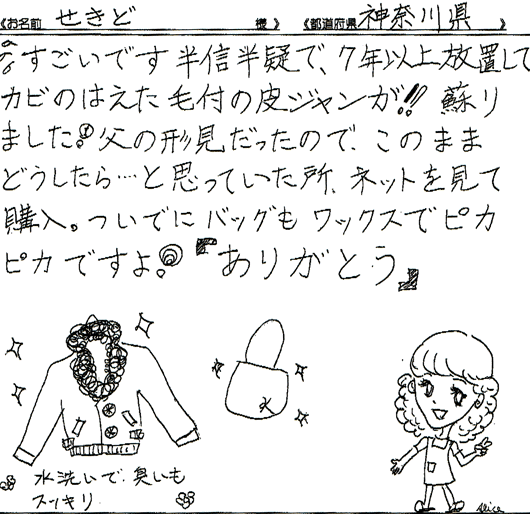 《お名前 せきど 様》 《都道府県 神奈川県 》
すごいです 半信半疑で、7年以上放置して
カビのはえた毛付の皮ジャンが!! 蘇り
ました! 父の形見だったので、このまま
どうしたら…と思っていた所、ネットを見て
購入。ついでにバッグもワックスでピカ
ピカですよ! 『ありがとう』
水洗いで、臭いも
スッキリ
alice